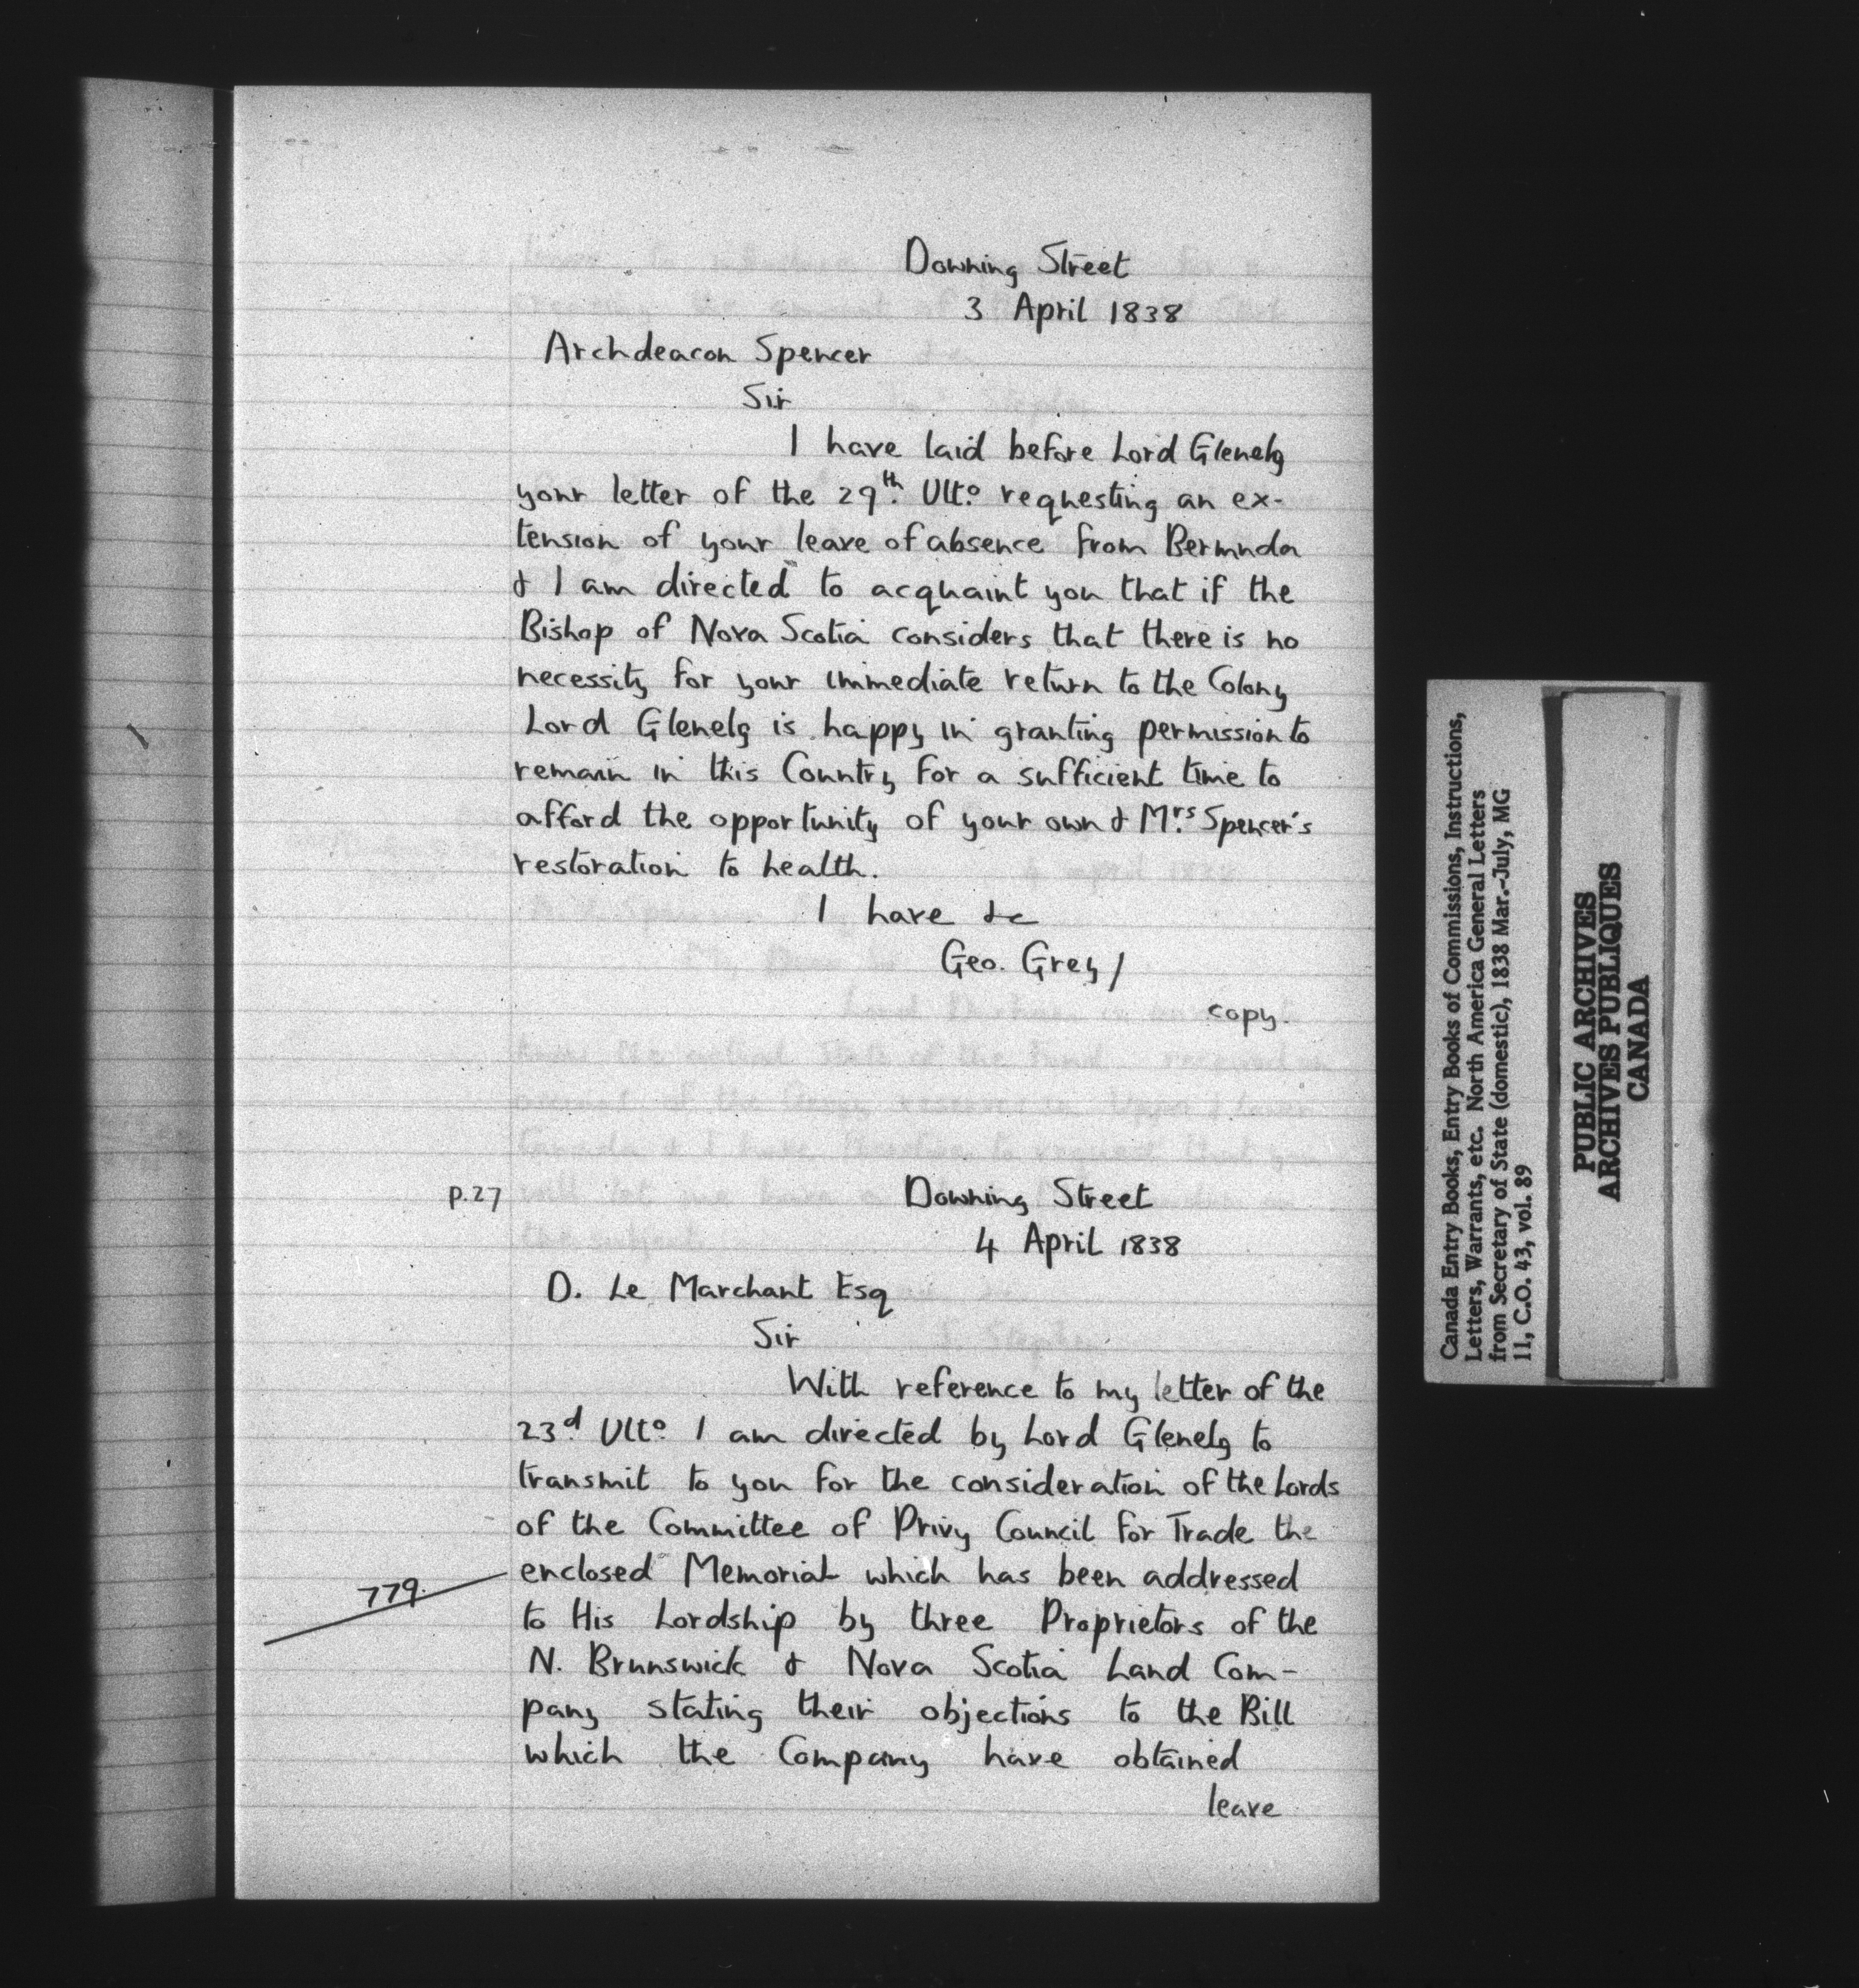 Downing Street
3 April 1838
Archdeacon Spencer
Sir
I have laid before Lord Glenelg
your letter of the 29th. Ulto. requesting an ex-
tension of your leave of absence from Bermuda
& I am directed to acquaint you that if the
Bishop of Nova Scotia considers that there is no
necessity for your immediate return to the Colony
Lord Glenelg is happy in granting permission to
remain in this Country for a sufficient time to
afford the opportunity of your own & Mrs. Spencer's
restoration to health.
I have &c
Geo. Grey/
copy.
p.27
Downing Street
4 April 1838
D. Le Marchant Esq
Sir
With reference to my letter of the
23d Ulto. I am directed by Lord Glenelg to
transmit to you for the consideration of the Lords
of the Committee of Privy Council for Trade the
779.
enclosed Memorial which has been addressed
to His Lordship by three Proprietors of the
N. Brunswick & Nova Scotia Land Com-
pany stating their objections to the Bill
which the Company have obtained
leave
Canada Entry Books, Entry Books of Commissions, Instructions,
Letters, Warrants, etc. North America General Letters
from Secretary of State (domestic), 1838 Mar.-July, MG
11, C.O. 43, vol. 89
PUBLIC ARCHIVES
ARCHIVES PUBLIQUES
CANADA